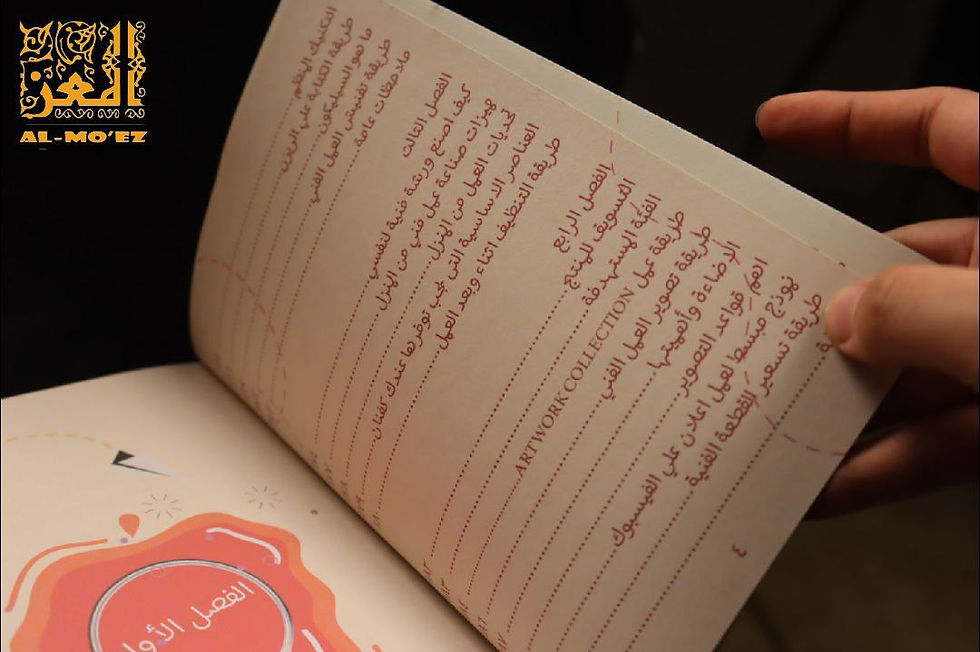 المعز
AL-MO'EZ
طريقة الكتابة علي الريزن
ما هو السيليكون
طريقة تفنيش العمل الفني
ملاحظات عامة
الفصل الثالث
كيف اصنع ورشة فنية لنفسي
ميزات صناعة عمل فني من المنزل
تحديات العمل من المنزل
العناصر الاساسية التى يجب توفرها عندك كفنان
طريقة التنظيف اثناء وبعد العمل
الفصل الرابع
التسويق للمنتج
الفئة المستهدفة
طريقة عمل ARTWORK COLLECTION
طريقة تصوير العمل الفني
الإضاءة وأهميتها
اهم قواعد التصوير
نموذج مبسط لعمل اعلان علي الفيسبوك
طريقة تسعير القطعة الفنية
٤
الفصل الأول